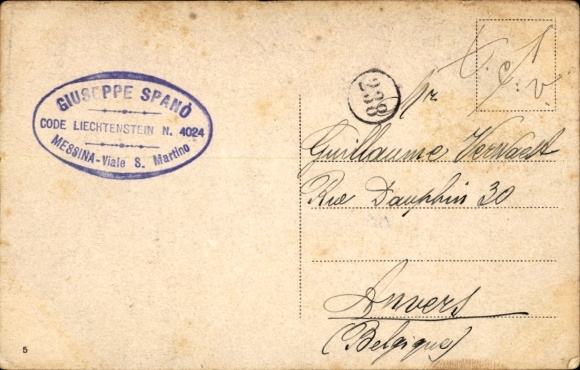 GIUSEPPE SPANÒ
CODE LIECHTENSTEIN N. 4024
MESSINA-Viale S. Martino
238
T. C. V.
Mr
Guillaume Vervaest
Rue Dauphin 30
Anvers
(Belgique)
5